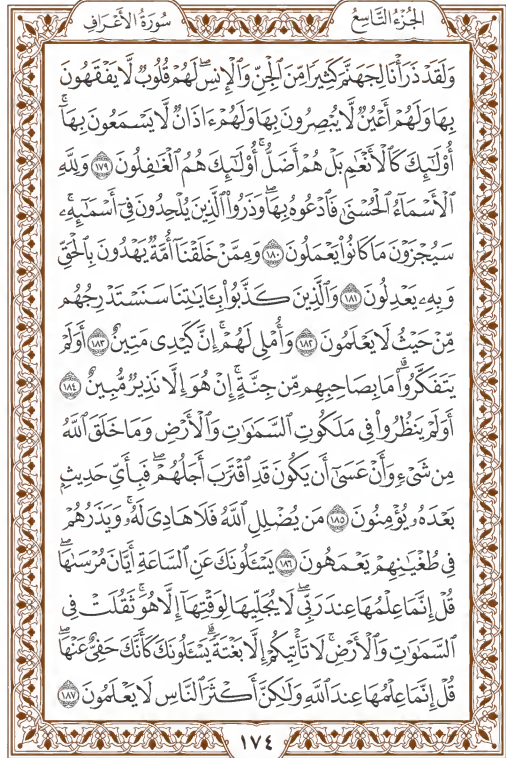 سُورَةُ الأَعْرَافِ
الجُزْءُ التَّاسِعُ
وَلَقَدْ ذَرَأْنَا لِجَهَنَّمَ كَثِيرًا مِّنَ ٱلْجِنِّ وَٱلْإِنسِۖ لَهُمْ قُلُوبٌ لَّا يَفْقَهُونَ
بِهَا وَلَهُمْ أَعْيُنٌ لَّا يُبْصِرُونَ بِهَا وَلَهُمْ ءَاذَانٌ لَّا يَسْمَعُونَ بِهَآۚ
أُو۟لَٰٓئِكَ كَٱلْأَنْعَٰمِ بَلْ هُمْ أَضَلُّۚ أُو۟لَٰٓئِكَ هُمُ ٱلْغَٰفِلُونَ ١٧٩ وَلِلَّهِ
ٱلْأَسْمَآءُ ٱلْحُسْنَىٰ فَٱدْعُوهُ بِهَاۖ وَذَرُوا۟ ٱلَّذِينَ يُلْحِدُونَ فِىٓ أَسْمَٰٓئِهِۦۚ
سَيُجْزَوْنَ مَا كَانُوا۟ يَعْمَلُونَ ١٨٠ وَمِمَّنْ خَلَقْنَآ أُمَّةٌ يَهْدُونَ بِٱلْحَقِّ
وَبِهِۦ يَعْدِلُونَ ١٨١ وَٱلَّذِينَ كَذَّبُوا۟ بِـَٔايَٰتِنَا سَنَسْتَدْرِجُهُم
مِّنْ حَيْثُ لَا يَعْلَمُونَ ١٨٢ وَأُمْلِى لَهُمْۚ إِنَّ كَيْدِى مَتِينٌ ١٨٣ أَوَلَمْ
يَتَفَكَّرُوا۟ۗ مَا بِصَاحِبِهِم مِّن جِنَّةٍۚ إِنْ هُوَ إِلَّا نَذِيرٌ مُّبِينٌ ١٨٤
أَوَلَمْ يَنظُرُوا۟ فِى مَلَكُوتِ ٱلسَّمَٰوَٰتِ وَٱلْأَرْضِ وَمَا خَلَقَ ٱللَّهُ
مِن شَىْءٍ وَأَنْ عَسَىٰٓ أَن يَكُونَ قَدِ ٱقْتَرَبَ أَجَلُهُمْۖ فَبِأَىِّ حَدِيثٍۭ
بَعْدَهُۥ يُؤْمِنُونَ ١٨٥ مَن يُضْلِلِ ٱللَّهُ فَلَا هَادِىَ لَهُۥۚ وَيَذَرُهُمْ
فِى طُغْيَٰنِهِمْ يَعْمَهُونَ ١٨٦ يَسْـَٔلُونَكَ عَنِ ٱلسَّاعَةِ أَيَّانَ مُرْسَىٰهَاۖ
قُلْ إِنَّمَا عِلْمُهَا عِندَ رَبِّىۖ لَا يُجَلِّيهَا لِوَقْتِهَآ إِلَّا هُوَۚ ثَقُلَتْ فِى
ٱلسَّمَٰوَٰتِ وَٱلْأَرْضِۚ لَا تَأْتِيكُمْ إِلَّا بَغْتَةًۗ يَسْـَٔلُونَكَ كَأَنَّكَ حَفِىٌّ عَنْهَاۖ
قُلْ إِنَّمَا عِلْمُهَا عِندَ ٱللَّهِ وَلَٰكِنَّ أَكْثَرَ ٱلنَّاسِ لَا يَعْلَمُونَ ١٨٧
١٧٤